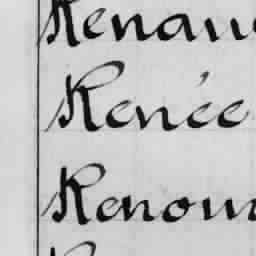 Renau
Renée
Renom